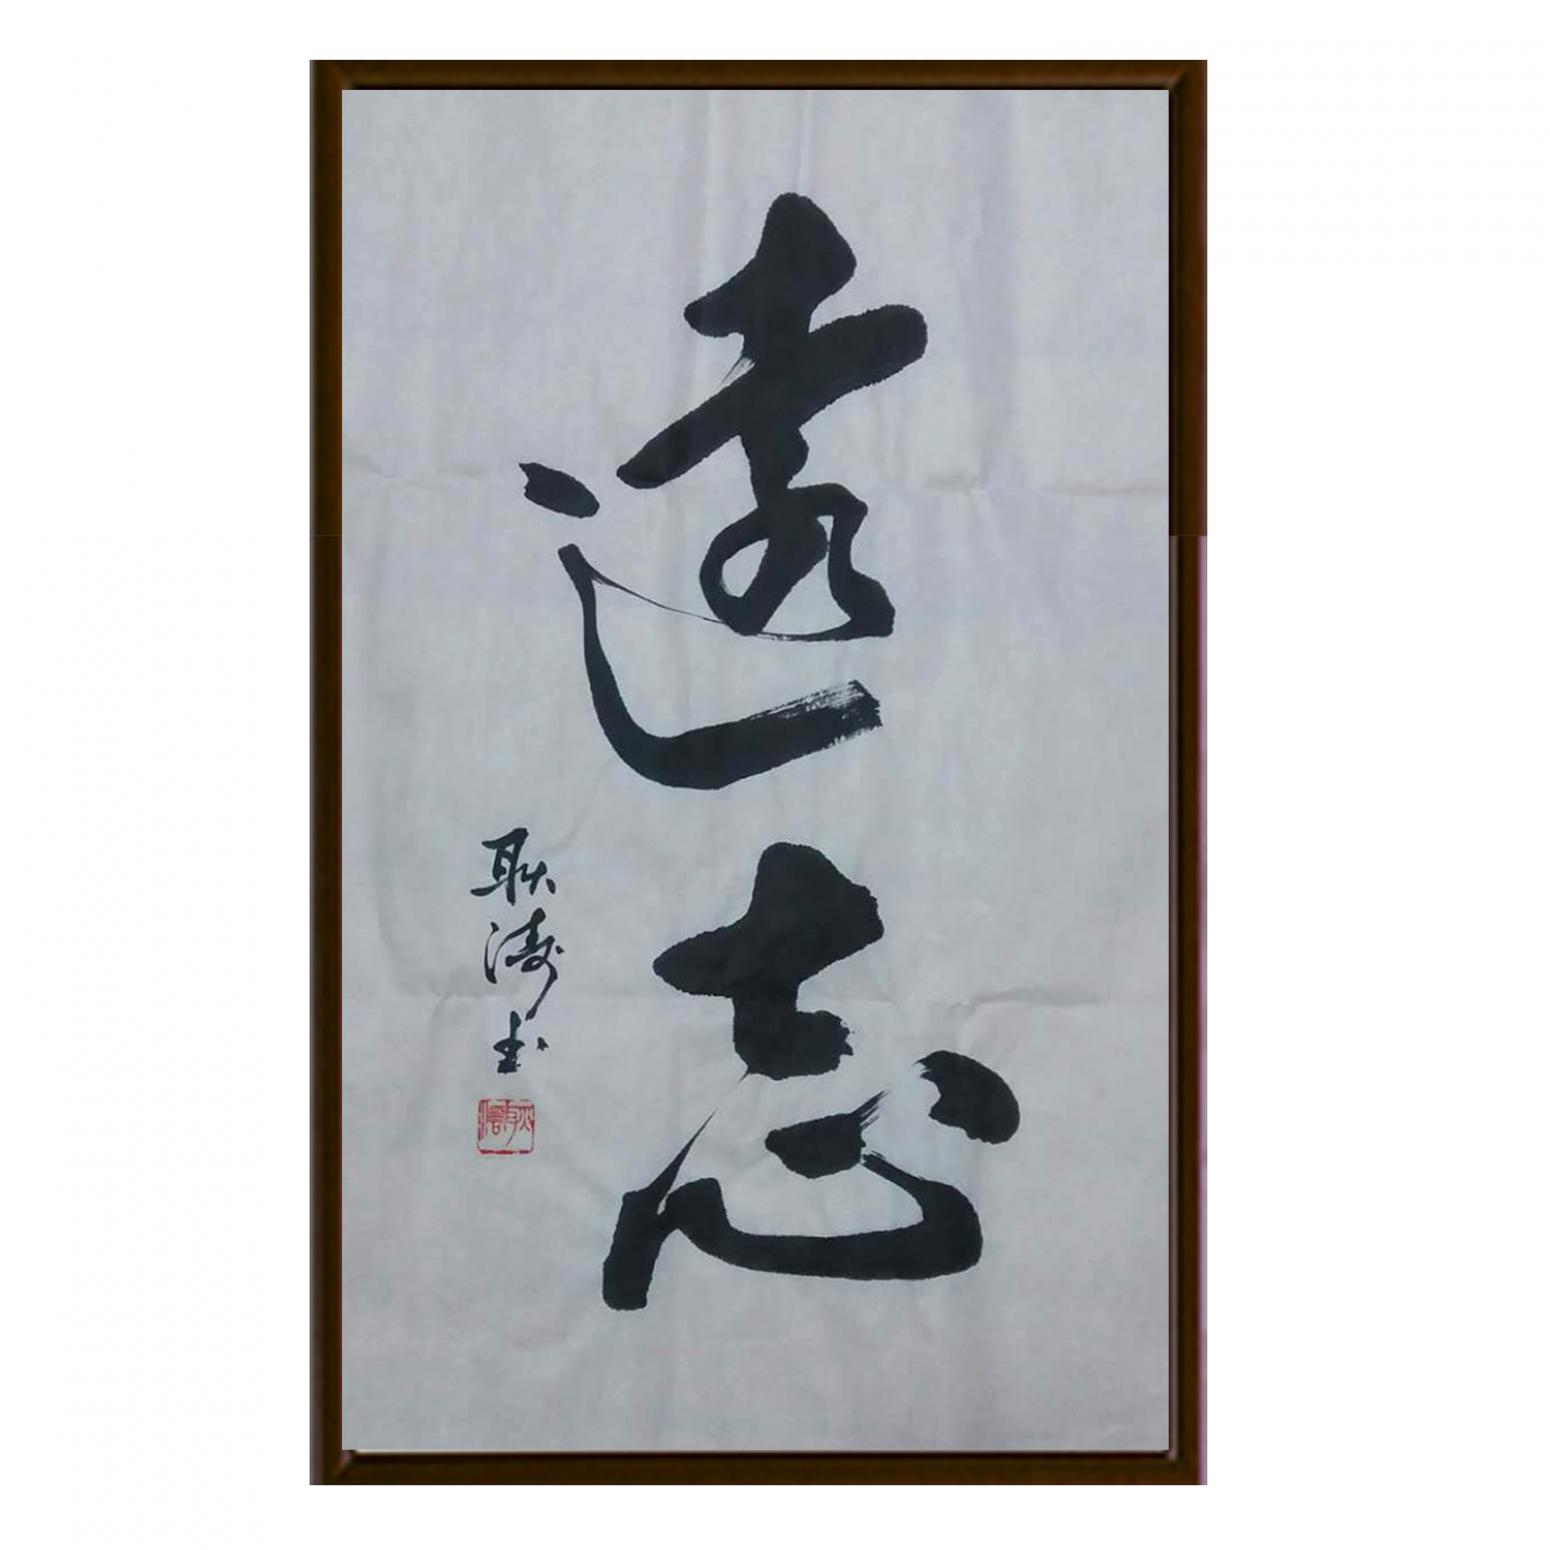 遠志
耿濤书